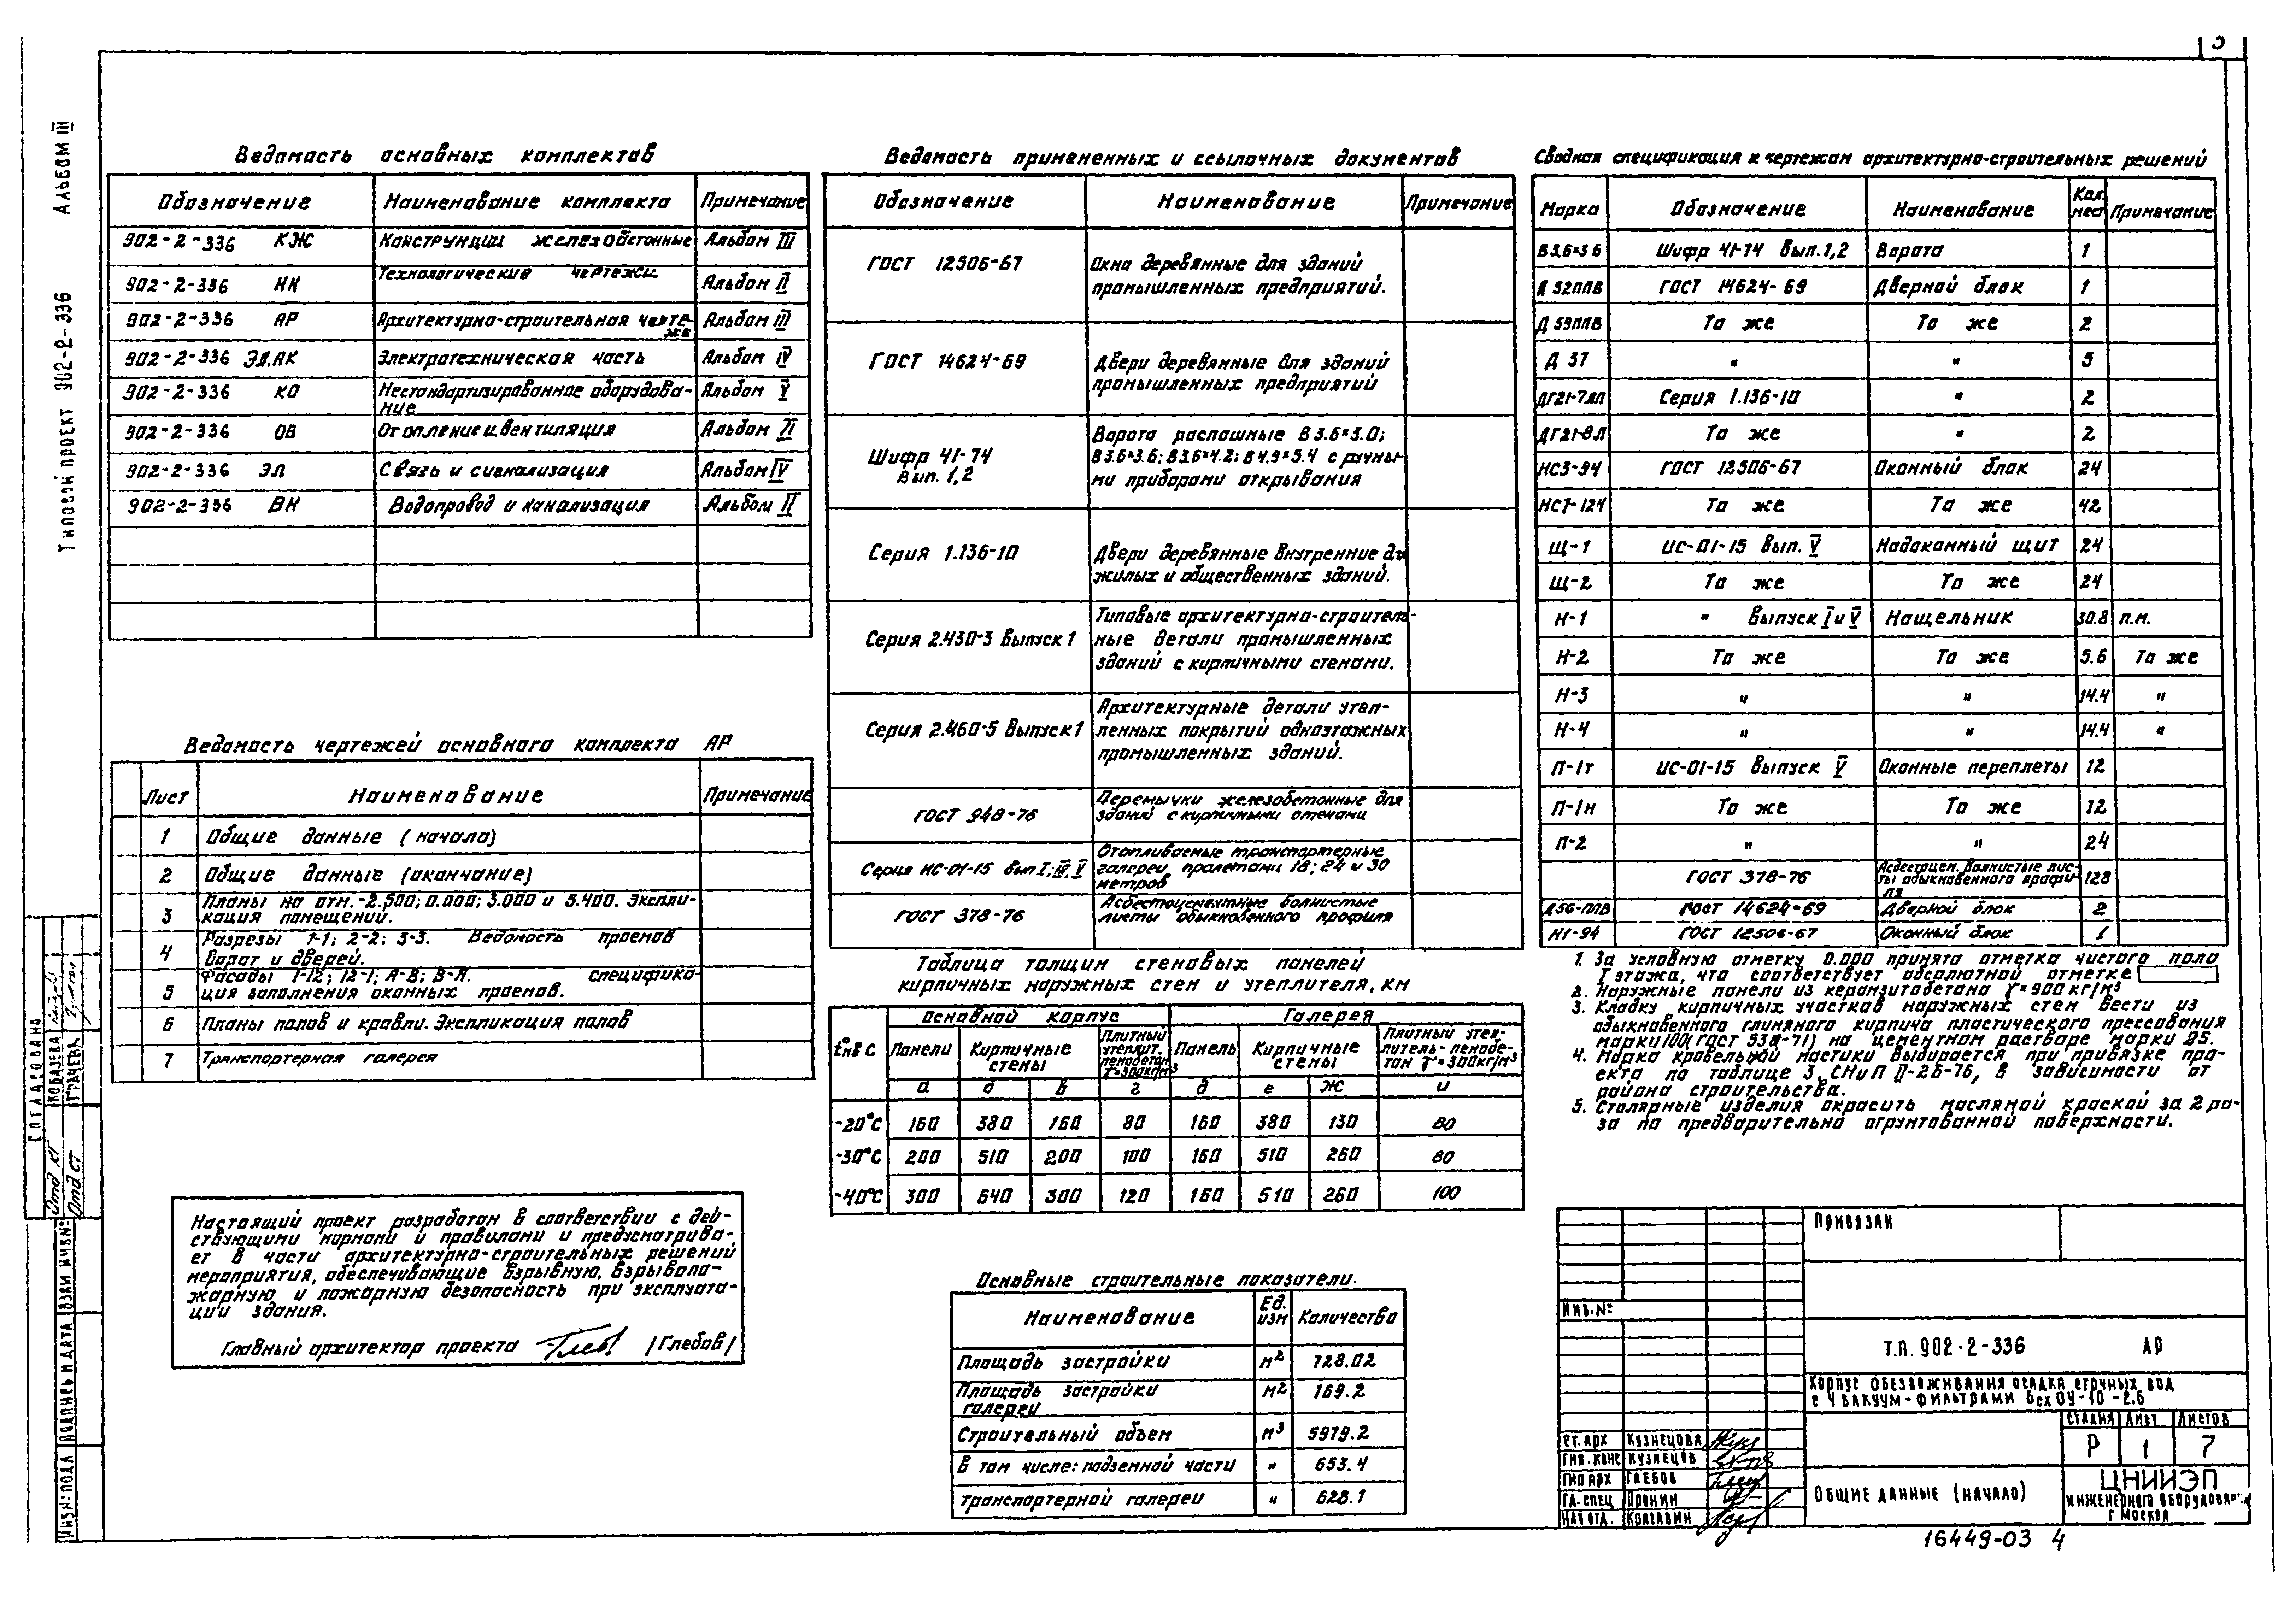 3
Альбом III
Типовой проект 902-2-336
Ведомость основных комплектов
Обозначение Наименование комплекта Примечание
902-2-336 КЖ Конструкции железобетонные Альбом III
902-2-336 НК Технологические чертежи Альбом II
902-2-336 АР Архитектурно-строительная черте-
жи Альбом III
902-2-336 ЭЛ.АК Электротехническая часть Альбом IV
902-2-336 КО Нестандартизированное оборудова-
ние Альбом V
902-2-336 ОВ Отопление и вентиляция Альбом
902-2-336 ЭЛ Связь и сигнализация Альбом IV
902-2-336 ВК Водопровод и канализация Альбом II
Ведомость чертежей основного комплекта АР
Лист Наименование Примечание
1 Общие данные (начало)
2 Общие данные (окончание)
3 Планы на отм. -2.500; 0.000; 3.000 и 5.400. Экспли-
кация помещений.
4 Разрезы 1-1; 2-2; 3-3. Ведомость проемов
ворот и дверей.
5 Фасады 1-12; 12-1; А-В; В-А. Специфика-
ция заполнения оконных проемов.
6 Планы полов и кровли. Экспликация полов
7 Транспортерная галерея
Настоящий проект разработан в соответствии с дей-
ствующими нормами и правилами и предусматрива-
ет в части архитектурно-строительных решений
мероприятия, обеспечивающие взрывную, взрывопо-
жарную и пожарную безопасность при эксплуата-
ции здания.
Главный архитектор проекта /Глебов/
Ведомость примененных и ссылочных документов
Обозначение Наименование Примечание
ГОСТ 12506-67 Окна деревянные для зданий
промышленных предприятий.
ГОСТ 14624-69 Двери деревянные для зданий
промышленных предприятий
Шифр 41-74
Вып. 1,2
Ворота распашные В 3.6×3.0;
В 3.6×3.6; В 3.6×4.2; В 4.9×5.4 с ручны-
ми приборами открывания
Серия 1.136-10 Двери деревянные внутренние для
жилых и общественных зданий.
Серия 2.430-3 Выпуск 1 Типовые архитектурно-строитель-
ные детали промышленных
зданий с кирпичными стенами.
Серия 2.460-5 Выпуск 1 Архитектурные детали утеп-
ленных покрытий одноэтажных
промышленных зданий.
ГОСТ 948-76 Перемычки железобетонные для
зданий с кирпичными стенами
Серия ИС-01-15 вып I; III, V Отапливаемые транспортерные
галереи, пролетами 18; 24 и 30
метров
ГОСТ 378-76 Асбестоцементные волнистые
листы обыкновенного профиля
Таблица толщин стеновых панелей
кирпичных наружных стен и утеплителя, км
tн°в С Основной корпус Галерея
Панели Кирпичные стены Плитный утеплит. пенобетон γ=300кг/м³ Панель Кирпичные стены Плитный утеп-
литель-пенобе-
тон γ=300кг/м³
а б в г д е ж и
-20°С 160 380 160 80 160 380 130 80
-30°С 200 510 200 100 160 510 260 80
-40°С 300 640 300 120 160 510 260 100
Основные строительные показатели.
Наименование Ед. изм Количества
Площадь застройки м² 728.02
Площадь застройки
галереи м² 169.2
Строительный объем м³ 5979.2
в том числе: подземной части " 653.4
транспортерной галереи " 628.1
Сводная спецификация к чертежам архитектурно-строительных решений
Марка Обозначение Наименование Кол. мест Примечание
В3.6×3.6 Шифр 41-74 Вып. 1,2 Ворота 1
Д 52ППВ ГОСТ 14624-69 Дверной блок 1
Д 59ППВ То же То же 2
Д 37 " " 5
ДГ21-7ЛП Серия 1.136-10 " 2
ДГ21-9Л То же " 2
НС3-94 ГОСТ 12506-67 Оконный блок 24
НС7-124 То же То же 42
Щ-1 ИС-01-15 Вып. V Надоконный щит 24
Щ-2 То же То же 24
Н-1 " Выпуск I и V Нащельник 30.8 п.м.
Н-2 То же То же 5.6 То же
Н-3 " " 14.4 "
Н-4 " " 14.4 "
П-1т ИС-01-15 Выпуск V Оконные переплеты 12
П-1н То же То же 12
П-2 " " 24
ГОСТ 378-76 Асбестоцем. волнистые лис-
ты обыкновенного профи-
ля 128
Д56-ППВ ГОСТ 14624-69 Дверной блок 2
Н1-94 ГОСТ 12506-67 Оконный блок 1
1. За условную отметку 0.000 принята отметка чистого пола
I этажа, что соответствует абсолютной отметке
2. Наружные панели из керамзитобетона γ=900кг/м³
3. Кладку кирпичных участков наружных стен вести из
обыкновенного глиняного кирпича пластического прессования
марки 100 (ГОСТ 530-71) на цементном растворе марки 25.
4. Марка кровельной мастики выбирается при привязке про-
екта по таблице 3, СНиП II-26-76, в зависимости от
района строительства.
5. Столярные изделия окрасить масляной краской за 2 ра-
за по предварительно огрунтованной поверхности.
Привязан
Инв.№
Т.П. 902-2-336 АР
Корпус обезвоживания осадка сточных вод
с 4 вакуум-фильтрами БсхОУ-10-2.6
Стадия Лист Листов
Р 1 7
Ст. арх Кузнецова
Гип. конс Кузнецов
Гип арх Глебов
Гл. спец Пронин
Нач отд. Красавин
Общие данные (начало)
ЦНИИЭП
инженерного оборудования
г Москва
16449-03 4
Согласовано
Отд КГ Ковалева
Отд СТ Грачева
Инв.№ подл Подпись и дата Взам инв.№